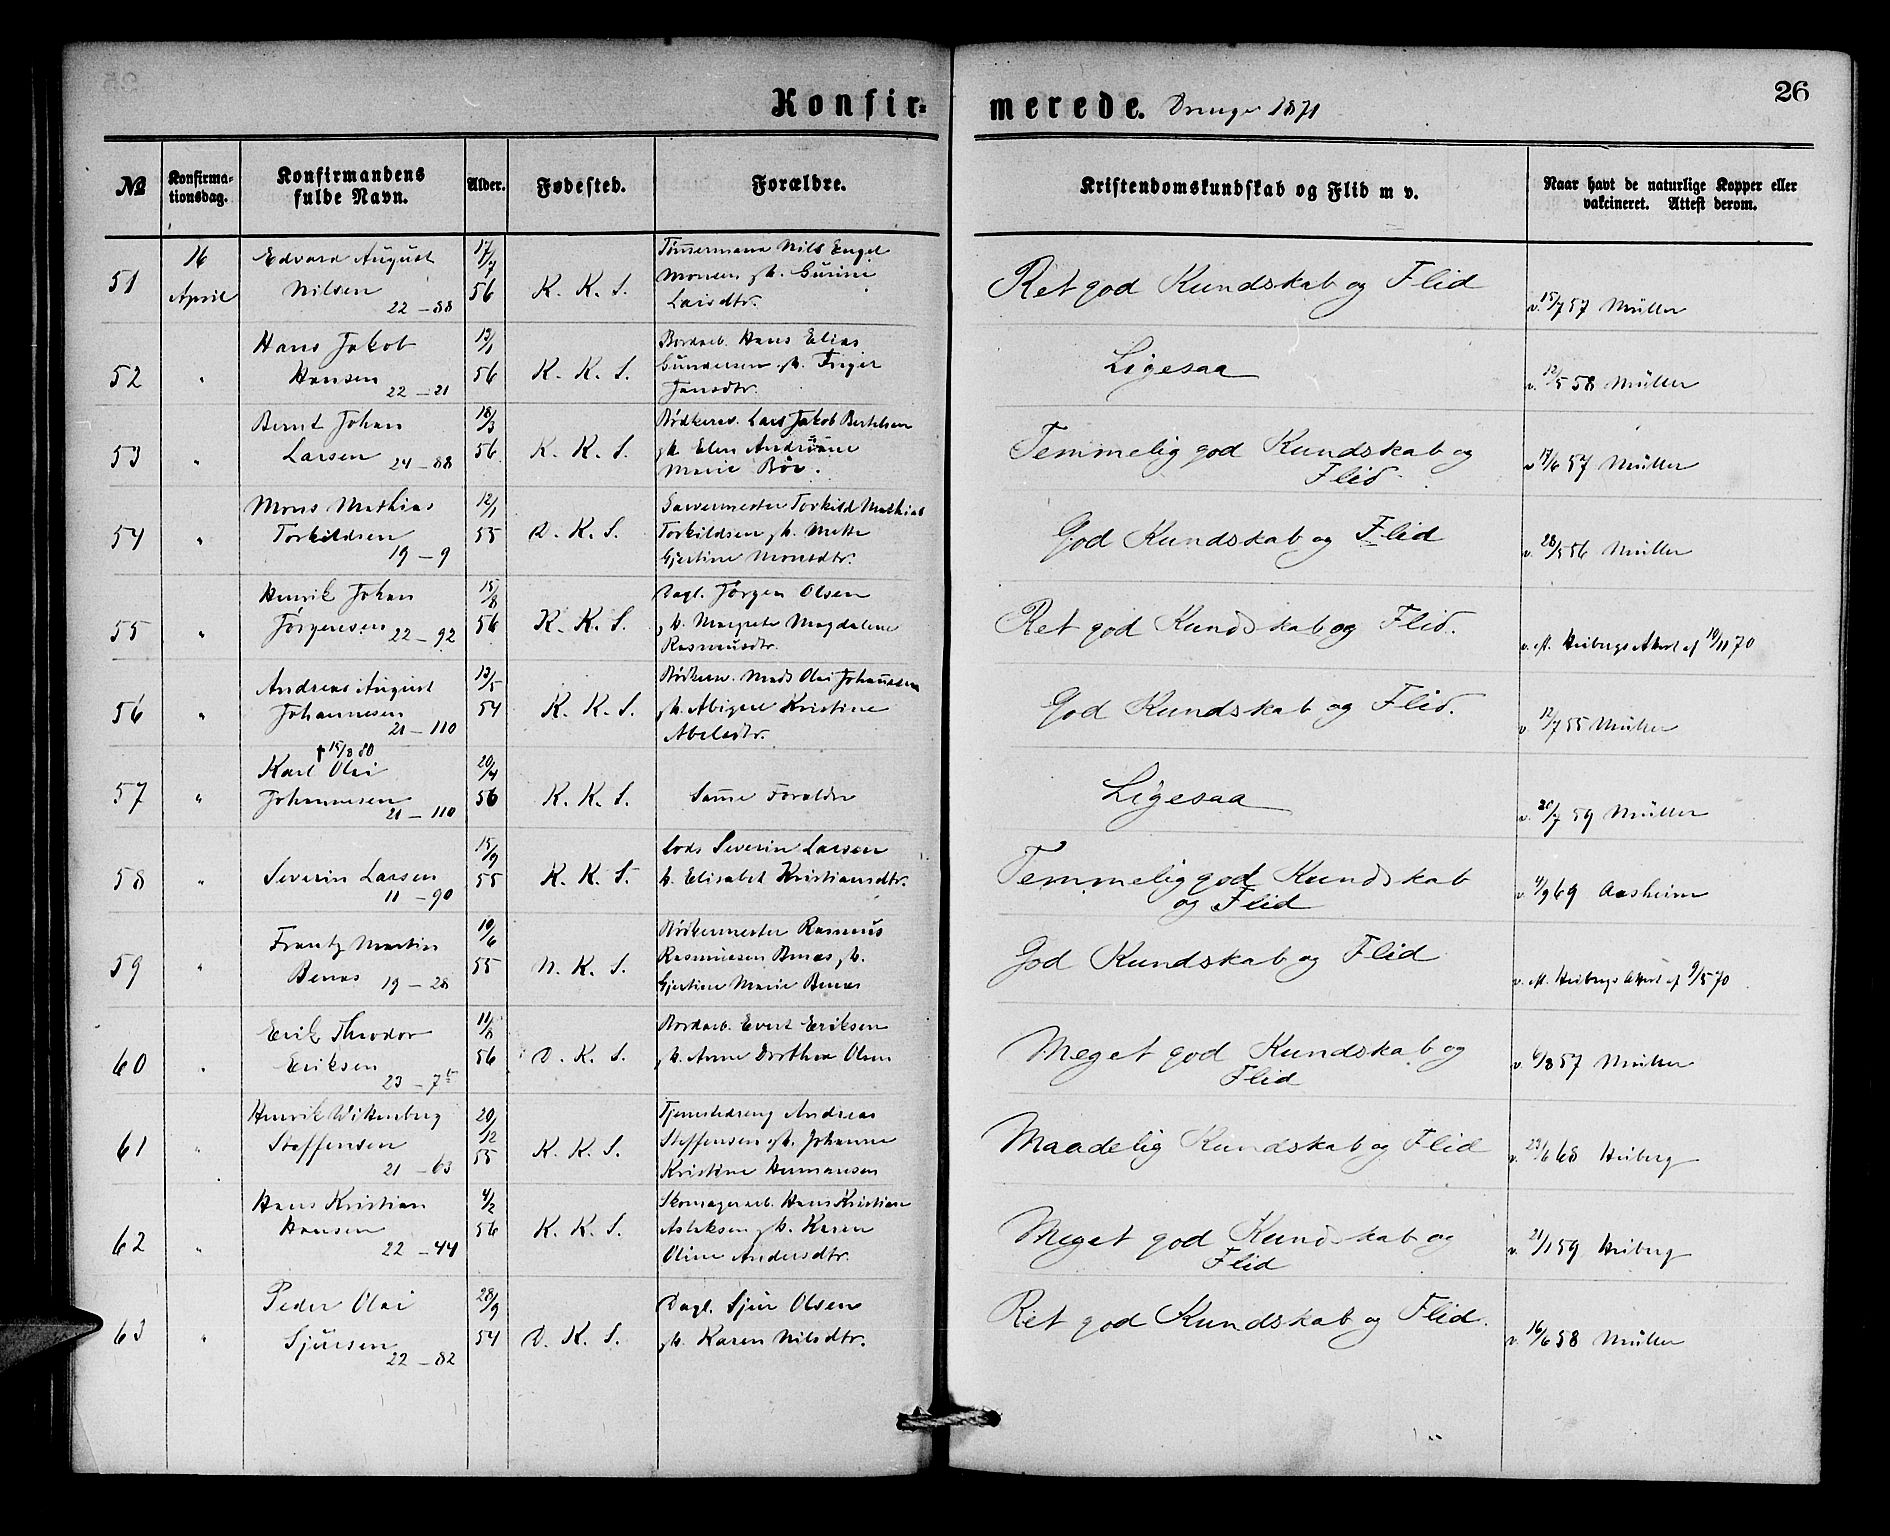 Konfir-
merede. Drenge 1871
26
№
Konfirma-
tionsdag.
Konfirmandens
fulde Navn.
Alder.
Fødested.
Forældre.
Kristendomskundskab og Flid m v.
Naar havt de naturlige Kopper eller
vakcineret. Attest derom.
51
16
April
Edvard August
Nilsen
22 – 88
17/7
56
K. K. S.
Tømmermand Nils Engel
Monsen, h. Gurine
Larsdtr.
Ret god Kundskab og Flid
v. 15/7 57 Müller
52
"
Hans Jakob
Hansen
22 – 21
13/1
56
K. K. S.
Bordarb. Hans Elias
Gundersen, h. Inger
Jansdtr.
Ligesaa
v. 12/5 58 Müller
53
"
Bernt Johan
Larsen 24 – 88
18/3
56
K. K. S.
Bødkersv. Lars Jakob Bertelsen
h. Elen Andreane
Marie Bøe.
Temmelig god Kundskab og
Flid
v 17/6 57 Müller
54
"
Mons Mathias
Torkildsen
19 – 9
12/1
55
D. K. S.
Garvermester Torkild Mathias
Torkildsen, h. Mette
Gjertine Monsdtr.
God Kundskab og Flid
v. 28/5 56 Müller
55
"
Henrik Johan
Jørgensen 22 – 92
15/8
56
K. K. S.
Dagl. Jørgen Olsen
h. Margrete Magdalene
Rasmusdtr.
Ret god Kundskab og Flid.
v. eft. Heibergs Attest af 10/11 70
56
"
Andreas August
Johannesen
21 – 110
13/5
54
K. K. S.
Bødkersv. Mads Olai Johannesen
h. Abigael Kristine
Abelsdtr.
God Kundskab og Flid.
v. 12/7 55 Müller
57
"
† 15/8 80
Karl Olai
Johannesen
21 – 110
20/4
56
K. K. S.
Samme Forældre
Ligesaa
v. 20/7 59 Müller
58
"
Severin Larsen
11 – 90
15/9
55
K. K. S.
Lods Severin Larsen
h. Elisabet Kristiansdtr.
Temmelig god Kundskab
og Flid
v 4/9 69 Aasheim
59
"
Frantz Martin
Benas 19 – 28
10/6
55
N. K. S.
Bødkermester Rasmus
Rasmusen Benas, h.
Gjertine Marie Benas
God Kundskab og Flid
v. eft. Heibergs Attest af 9/5 70
60
"
Erik Theodor
Eriksen
23 – 7
11/8
56
D. K. S.
Bordarb. Evert Eriksen
h. Anne Dorthea Olsen
Meget god Kundskab og
Flid
v. 6/8 57 Müller
61
"
Henrik Wittenberg
Steffensen
21 – 63
20/12
55
K. K. S.
Tjenestedreng Andreas
Steffensen, h. Johanne
Kristine Hermansen
Maadelig Kundskab og Flid
v. 23/6 68 Heiberg
62
"
Hans Kristian
Hansen
22 – 44
4/2
56
K. K. S.
Skomagerarb. Hans Kristian
Aslaksen, h. Karen
Oline Andersdtr.
Meget god Kundskab og
Flid
v. 21/1 59 Heiberg
63
"
Peder Olai
Sjursen
22 – 82
28/9
54
D. K. S.
Dagl. Sjur Olsen
h. Karen Nilsdtr.
Ret god Kundskab og Flid.
v. 16/6 58 Müller